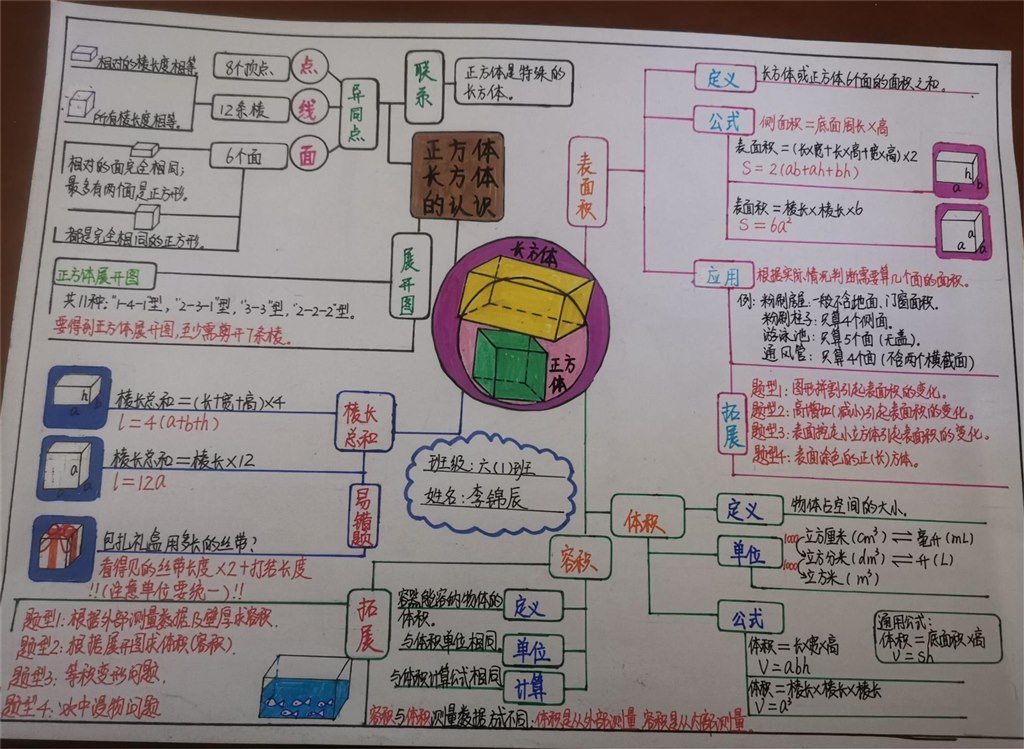 正方体
长方体
的认识
联系
正方体是特殊的
长方体。
异同点
点
8个顶点
线
12条棱
相对的棱长度相等
所有棱长度相等。
面
6个面
相对的面完全相同;
最多有两个面是正方形。
都是完全相同的正方形。
展开图
正方体展开图
共11种:"1-4-1"型,"2-3-1"型,"3-3"型,"2-2-2"型。
要得到正方体展开图,至少需剪开7条棱。
长方体
正方体
棱长总和
h
b
a
棱长总和=(长+宽+高)×4
l=4(a+b+h)
a
a
棱长总和=棱长×12
l=12a
易错题
包扎礼盒用多长的丝带?
看得见的丝带长度×2+打若长度
!!(注意单位要统一)!!
班级:六(1)班
姓名:李锦辰
表面积
定义
长方体或正方体6个面的面积之和。
公式
侧面积=底面周长×高
表面积=(长×宽+长×高+宽×高)×2
S=2(ab+ah+bh)
h
a b
表面积=棱长×棱长×6
S=6a²
a
a a
应用
根据实际情况判断需要算几个面的面积。
例:粉刷房屋:一般不含地面、门窗面积。
粉刷柱子:只算4个侧面。
游泳池:只算5个面(无盖)。
通风管:只算4个面(不含两个横截面)
拓展
题型1:图形拼割引起表面积的变化。
题型2:高增加(减小)引起表面积的变化。
题型3:表面挖走小立方体引起表面积的变化。
题型4:表面涂色的正(长)方体。
体积
定义
物体占空间的大小。
单位
1000 立方厘米(cm³)⇌毫升(mL)
1000 立方分米(dm³)⇌升(L)
立方米(m³)
公式
体积=长×宽×高
V=abh
体积=棱长×棱长×棱长
V=a³
通用公式:
体积=底面积×高
V=sh
容积
定义
容器能容的物体的
体积。
单位
与体积单位相同。
计算
与体积计算公式相同
容积与体积测量数据方式不同:体积是从外部测量,容积是从内部测量。
拓展
题型1:根据外部测量数据及壁厚求容积.
题型2:根据展开图求体积(容积).
题型3:等积变形问题.
题型4:水中浸物问题.